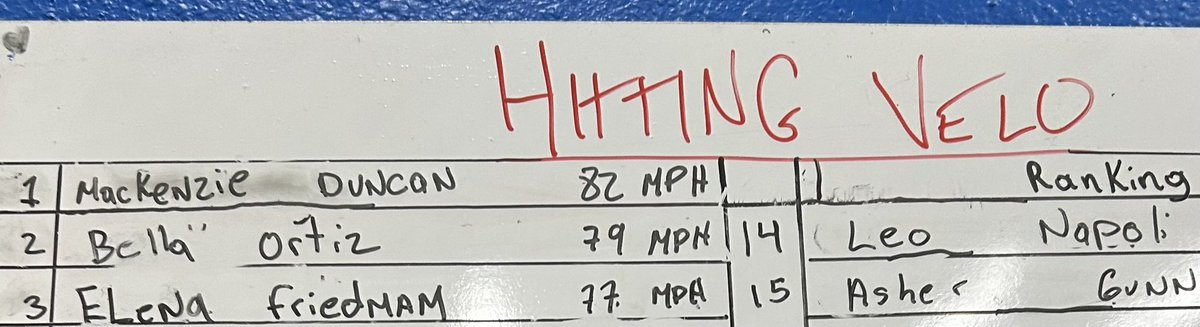 HITTING VELO
1 MacKENZie DUNCAN 82 MPH Ranking
2 Bella Ortiz 79 MPH 14 Leo Napoli
3 ELeNa friedMAM 77 MPH 15 Asher GUNN